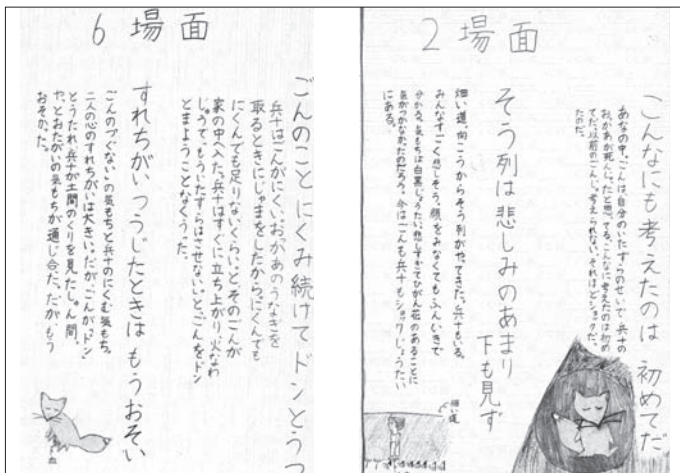 2場面
こんなにも考えたのは 初めてだ
あなの中、ごんは、自分のいたずらのせいで、兵十の
おっかあが死んじゃったと思ってる。こんなに考えたのは初め
てだ。以前のごんじゃ考えられない。それほどショックだっ
たのだ。
そう列は悲しみのあまり
下も見ず
細い道、向こうからそう列がやってきた。兵十もいる。
みんなすごく悲しそう。顔をみなくてもふんいきで
分かる。気もちは白黒じょうたい。悲しすぎてひがん花のあることに
気がつかなかったのだろう。今はごんも兵十もショックじょうたい
にある。
細い道
6場面
ごんのこと にくみ続けて ドンとうつ
兵十はごんがにくい。おっかあのうなぎを
取るときにじゃまをしたから。にくんでも
にくんでも足りないくらい。と、そのごんが
家の中へ入った。兵十はすぐに立ち上がり、火なわ
じゅうで、もういたずらはさせない。と、ごんをドン
とまようことなくうった。
すれちがい つうじたときは もうおそい
ごんのつぐないの気もちと兵十のにくむ気もち。
二人の心のすれちがいは大きい。だが、ごんが、ドン
とうたれ、兵十が土間のくりを見たしゅん間、
やっとおたがいの気もちが通じ合った。だがもう
おそかった。